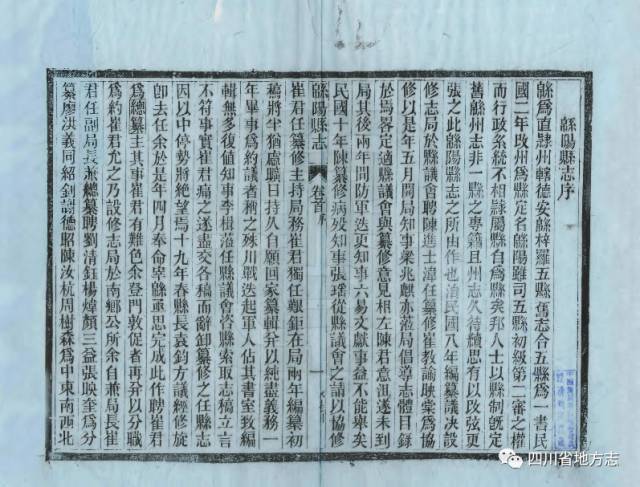 緜陽縣志序
緜爲直隸州轄德安緜梓羅五縣舊志合五縣爲一書民
國二年改州爲縣定名緜陽雖司五縣初級第二審之權
而行政系統不相隸屬縣自爲縣矣邦人士以縣制旣定
舊緜州志非一縣之專籍且州志久待續思有以改弦更
張之此緜陽縣志之所由作也洎民國八年編纂議決設
修志局於縣議會聘陳進士湋任纂修崔教諭映棠爲協
修以是年五月開局知事梁兆麒亦涖局倡導志體目錄
於焉畧定適縣議會與纂修意見相左陳君意沮遂未到
局其後兩年間防軍迭更知事六易文獻事益不能舉矣
民國十年陳纂修病歿知事張瑤從縣議會之請以協修
緜陽縣志
卷首
序
一
崔君任纂修主持局務崔君獨任艱鉅在局兩年編纂初
稿將半猶慮曠日持久自願回家纂輯分以純盡義務一
年畢事爲約議者稱之殊川戰迭起軍人佔其書室致編
輯無多復値知事李楫涖任縣議會咨縣索取志稿立言
不符事實崔君痛之遂盡交各稿而辭卸纂修之任縣志
因以中停勢將絶望焉十九年春縣長袁鈞方議經修旋
卽去任余於是年四月奉命宰緜重思完成此作聘崔君
爲總纂主其事崔君有難色余登門敦促者再分以分職
爲約崔君允之乃設修志局於南鄕公所余自兼局長崔
君任副局長兼總纂聘劉清鈺楊煒顏三益張映奎爲分
纂廖洪義同紹釗謝德昭陳汝杭周樹森爲中東南西北
四川省地方志